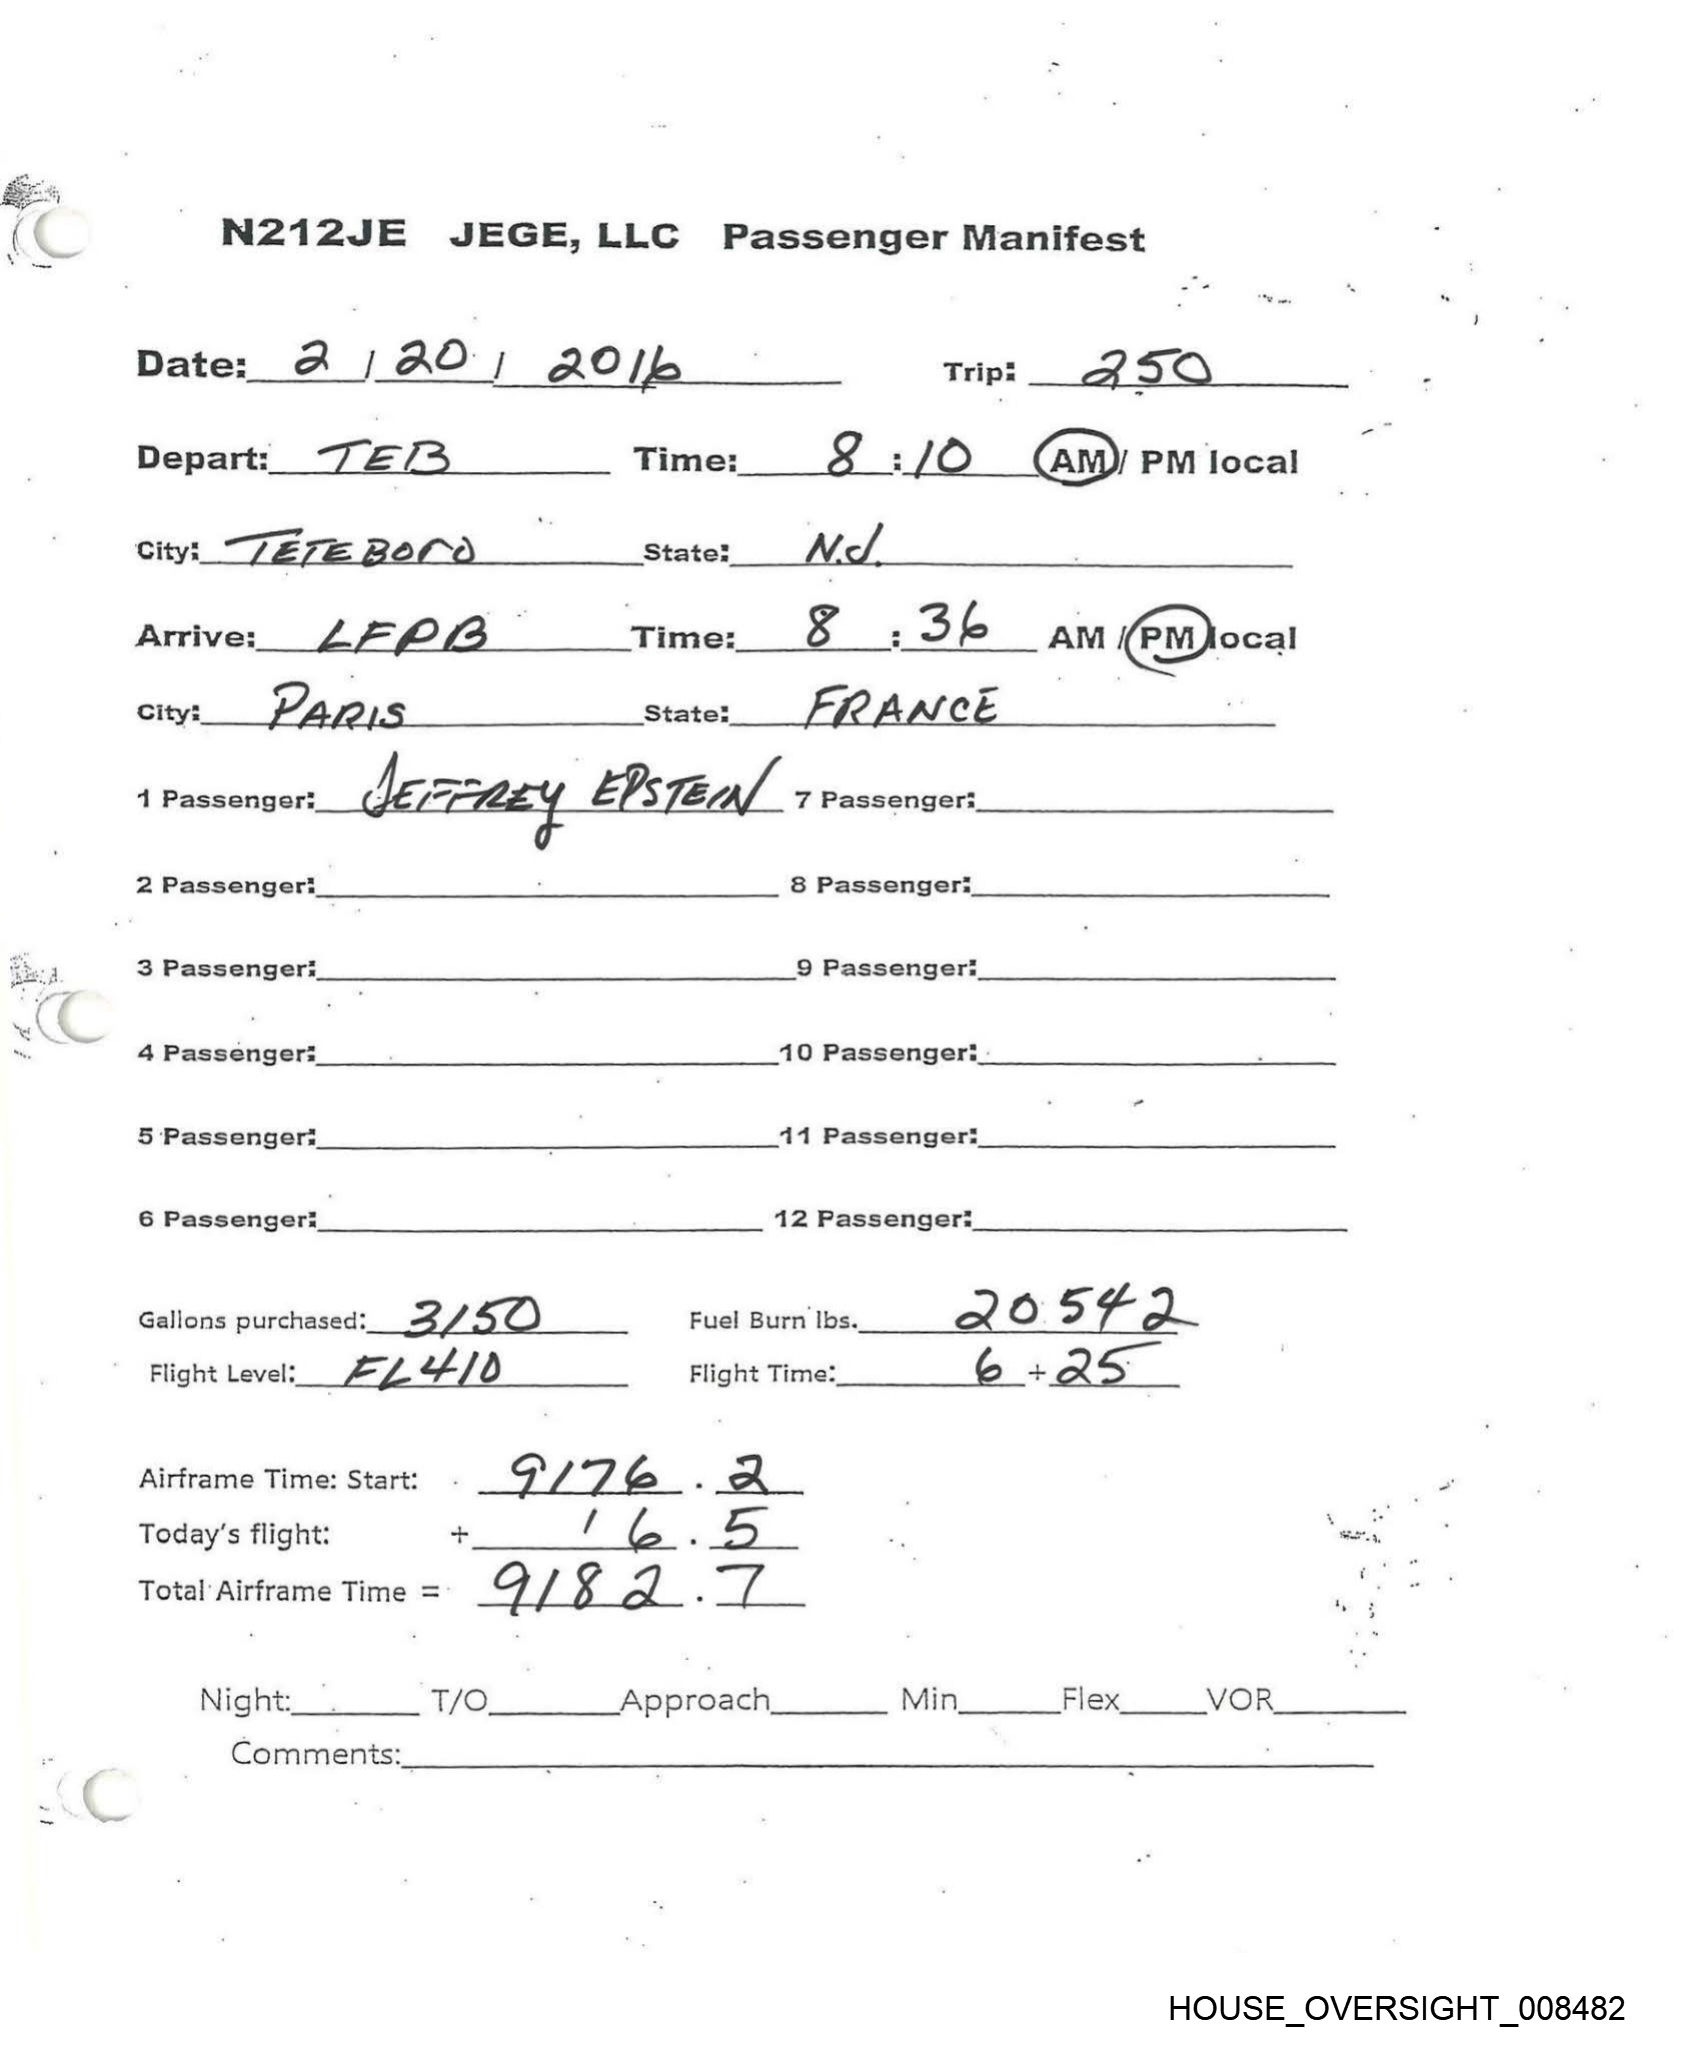 N212JE JEGE, LLC Passenger Manifest
Date: 2 / 20 / 2016 Trip: 250
Depart: TEB Time: 8 : 10 AM / PM local
City: TETEBORO State: N.J.
Arrive: LFPB Time: 8 : 36 AM / PM local
City: PARIS State: FRANCE
1 Passenger: JEFFREY EPSTEIN 7 Passenger:
2 Passenger: 8 Passenger:
3 Passenger: 9 Passenger:
4 Passenger: 10 Passenger:
5 Passenger: 11 Passenger:
6 Passenger: 12 Passenger:
Gallons purchased: 3150 Fuel Burn lbs. 20542
Flight Level: FL410 Flight Time: 6 + 25
Airframe Time: Start: 9176 . 2
Today's flight: + ' 6 . 5
Total Airframe Time = 9182 . 7
Night: T/O Approach Min Flex VOR
Comments:
HOUSE_OVERSIGHT_008482